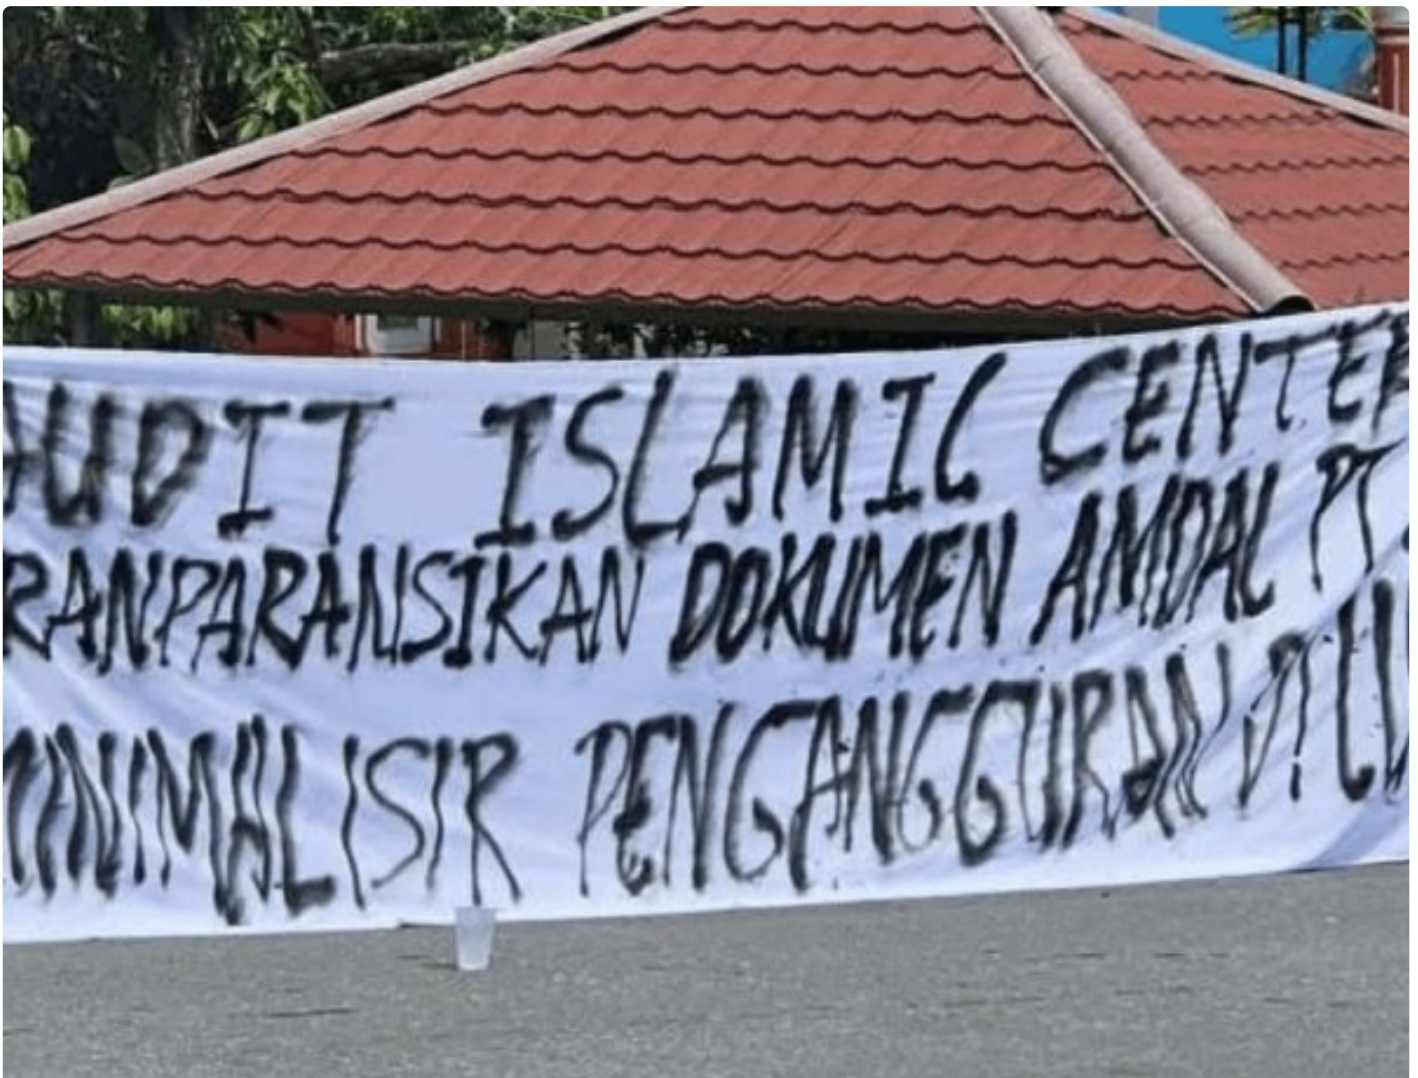 AUDIT ISLAMIC CENTER
RANPARANSIKAN DOKUMEN AMDAL PT.
MINIMALISIR PENGANGGURAN DI LU